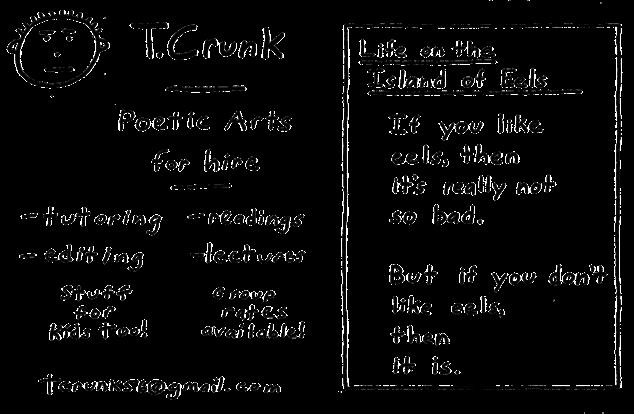 T. Crunk
Poetic Arts
for hire
- tutoring
- readings
- editing
- lectures
Stuff
for
kids too!
Group
rates
available!
@gmail.com
Life on the
Island of Eels
If you like
eels, then
it's really not
so bad.
But if you don't
like eels,
then
it is.